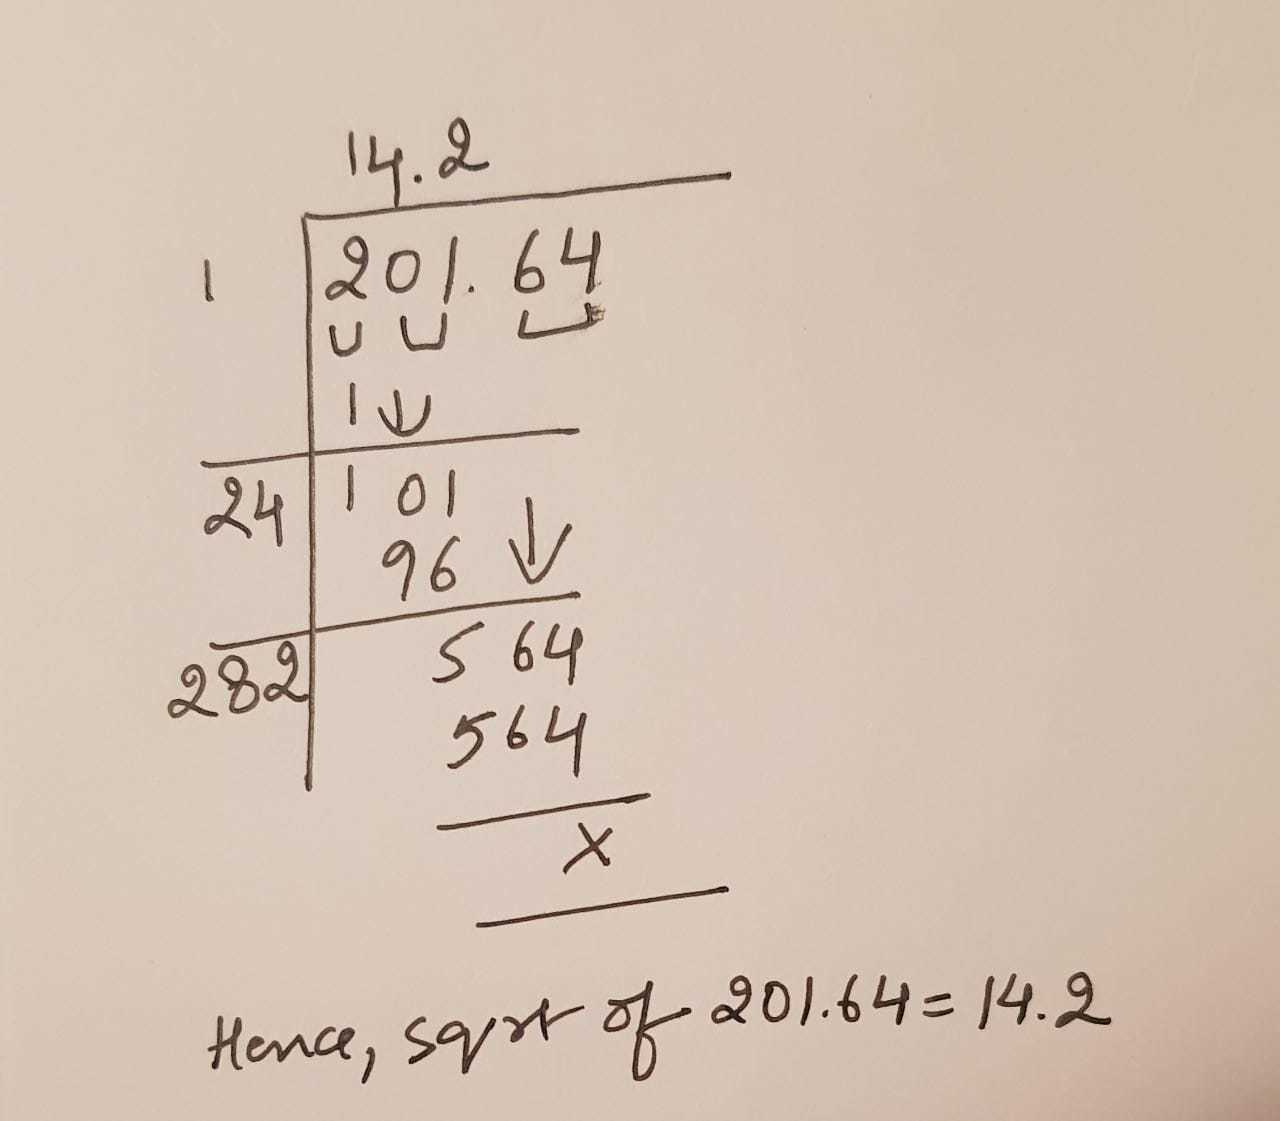 14.2
1 201.64
1
24 101
96
282 564
564
x
Hence, sqrt of 201.64 = 14.2